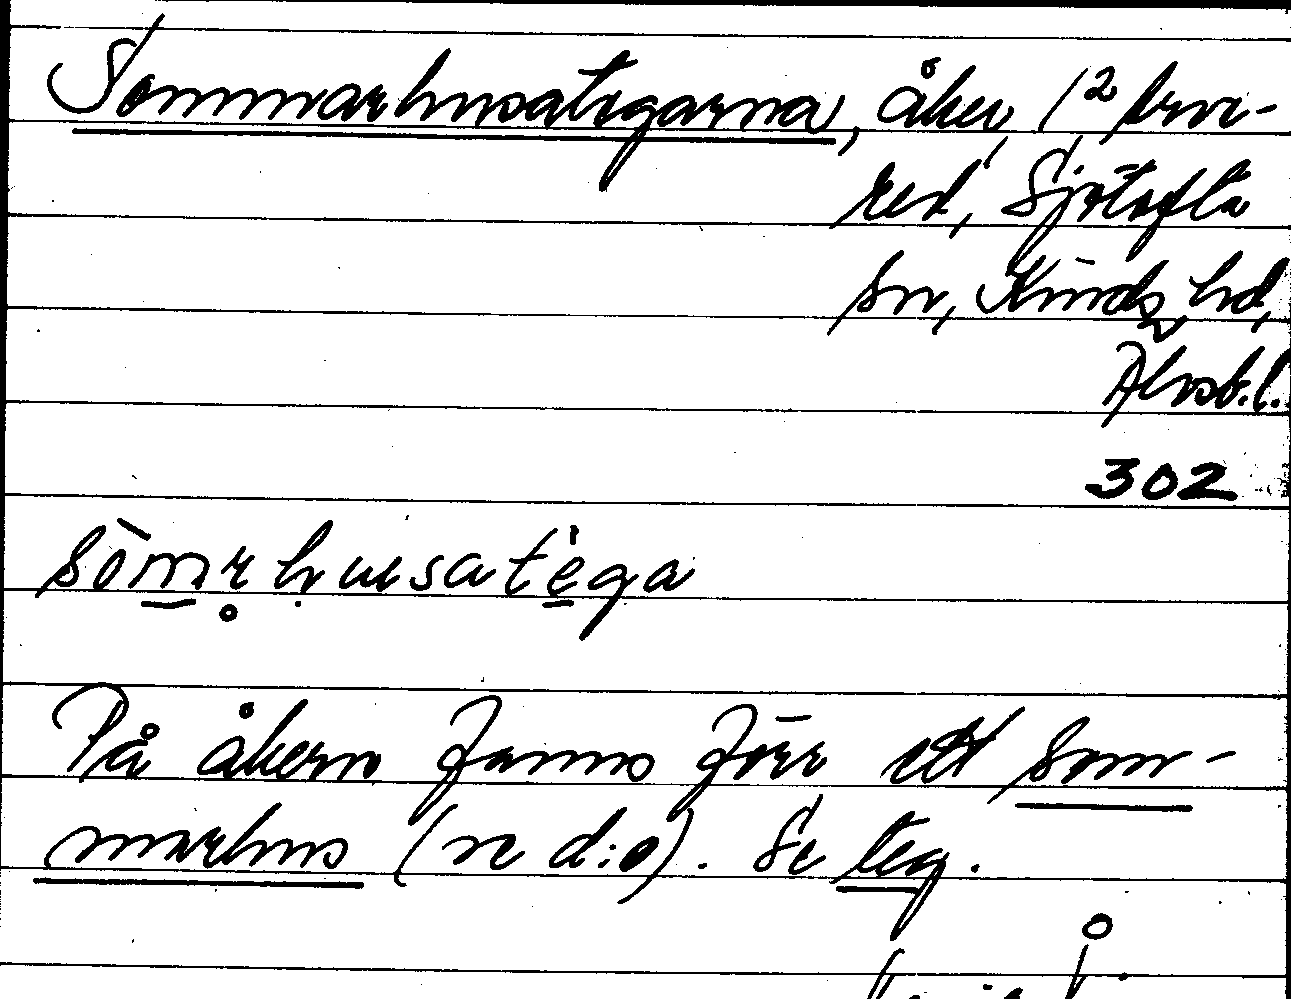 Sommarhusategarna, åker, 12
red, Sjötofta
sn, Kinds hd,
Älvsb.l.
302
sömrhusatega
På åkern fanns förr ett som-
marhus (se d:o). Se teg.